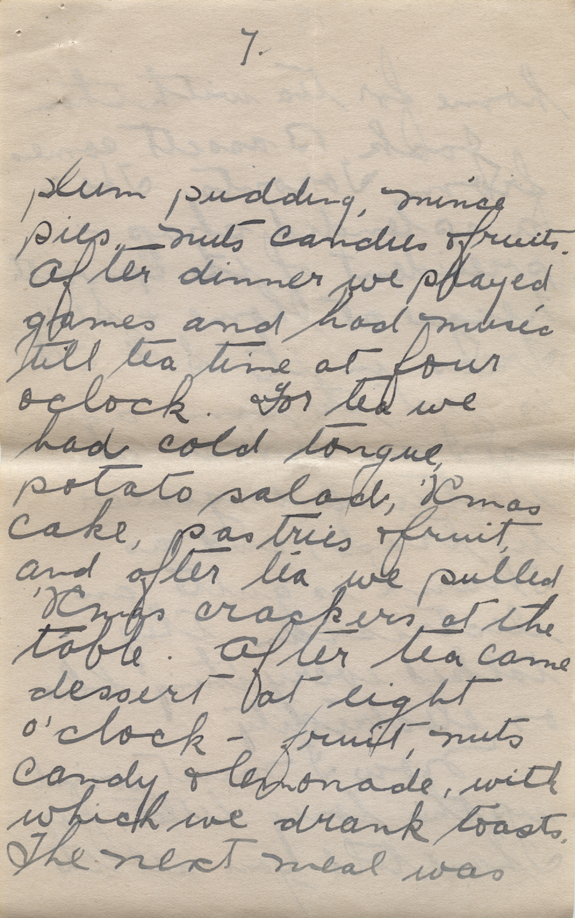 7.
plum pudding, mince
pies, nuts candies & fruits.
After dinner we played
games and had music
till tea time at four
oclock. For tea we
had cold tongue,
potato salad, Xmas
cake, pastries & fruit,
and after tea we pulled
Xmas crackers at the
table. After tea came
dessert at eight
o'clock - fruit, nuts
candy & lemonade, with
which we drank toasts.
The next meal was